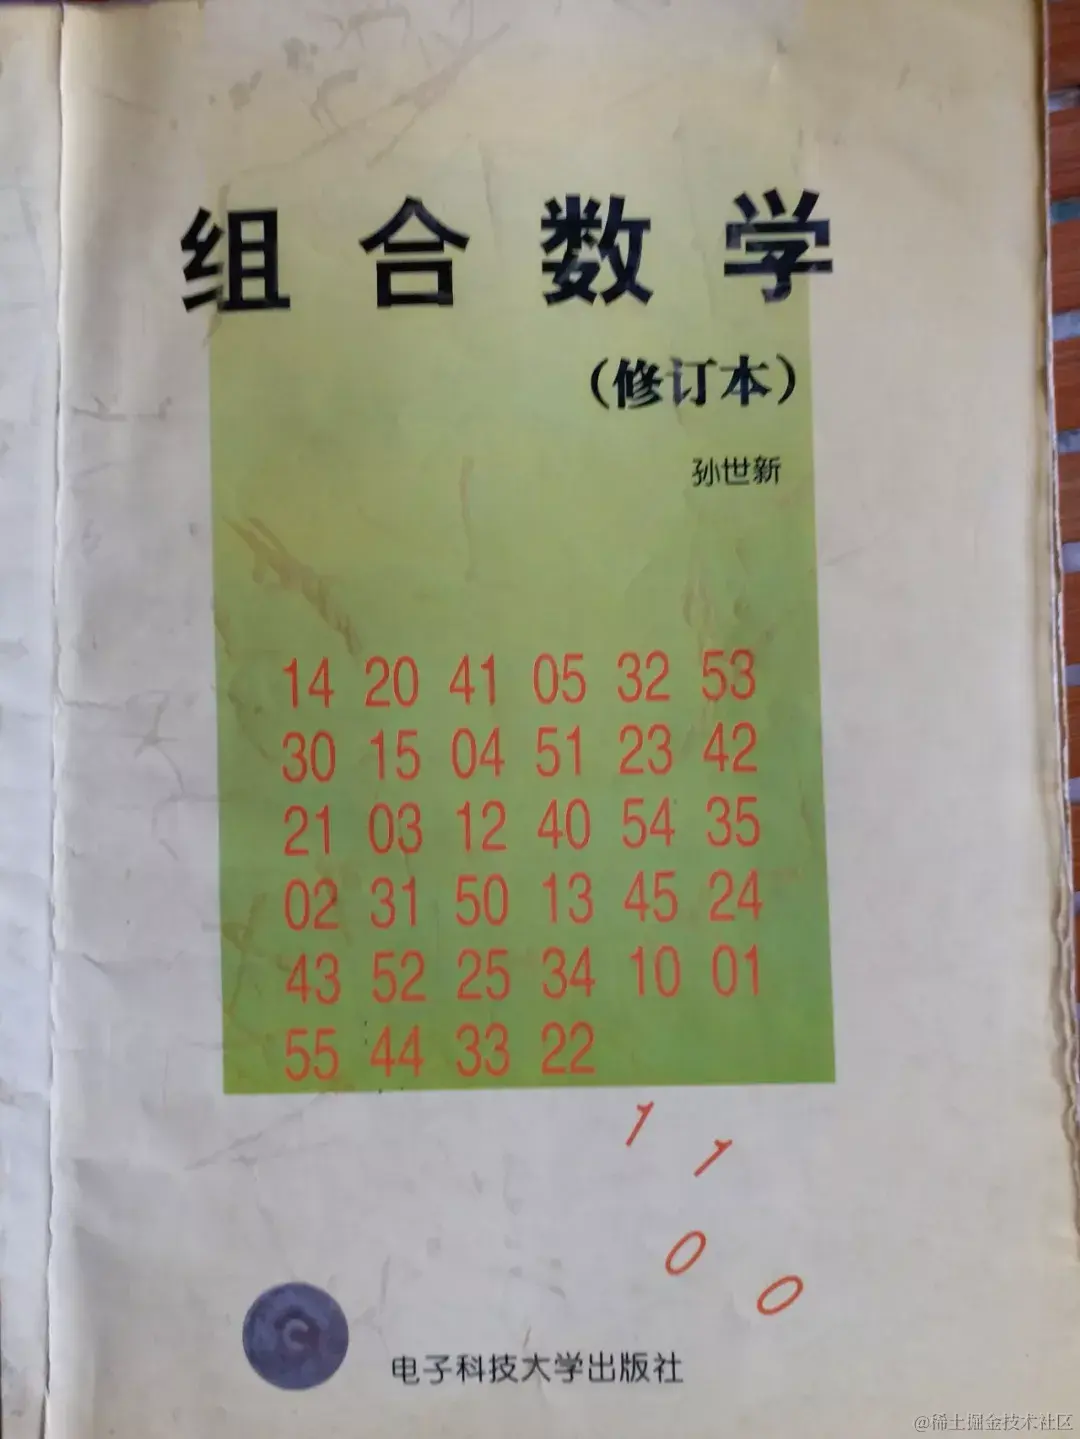 组合数学
(修订本)
孙世新
14 20 41 05 32 53
30 15 04 51 23 42
21 03 12 40 54 35
02 31 50 13 45 24
43 52 25 34 10 01
55 44 33 22
1 1
0 0
电子科技大学出版社
@稀土掘金技术社区